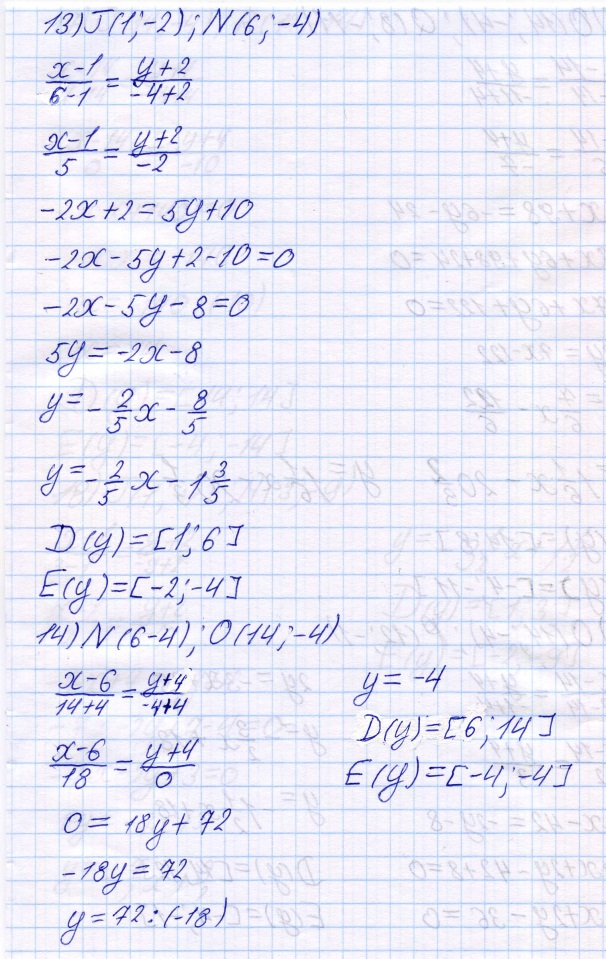 13) T(1;-2); N(6;-4)
x-1/6-1 = y+2/-4+2
x-1/5 = y+2/-2
-2x+2=5y+10
-2x-5y+2-10=0
-2x-5y-8=0
5y=-2x-8
y=-2/5x-8/5
y=-2/5x-1 3/5
D(y)=[1;6]
E(y)=[-2;-4]
14) N(6-4); O(14;-4)
x-6/14+4 = y+4/-4+4
x-6/18 = y+4/0
0=18y+72
-18y=72
y=72:(-18)
y=-4
D(y)=[6;14]
E(y)=[-4;-4]